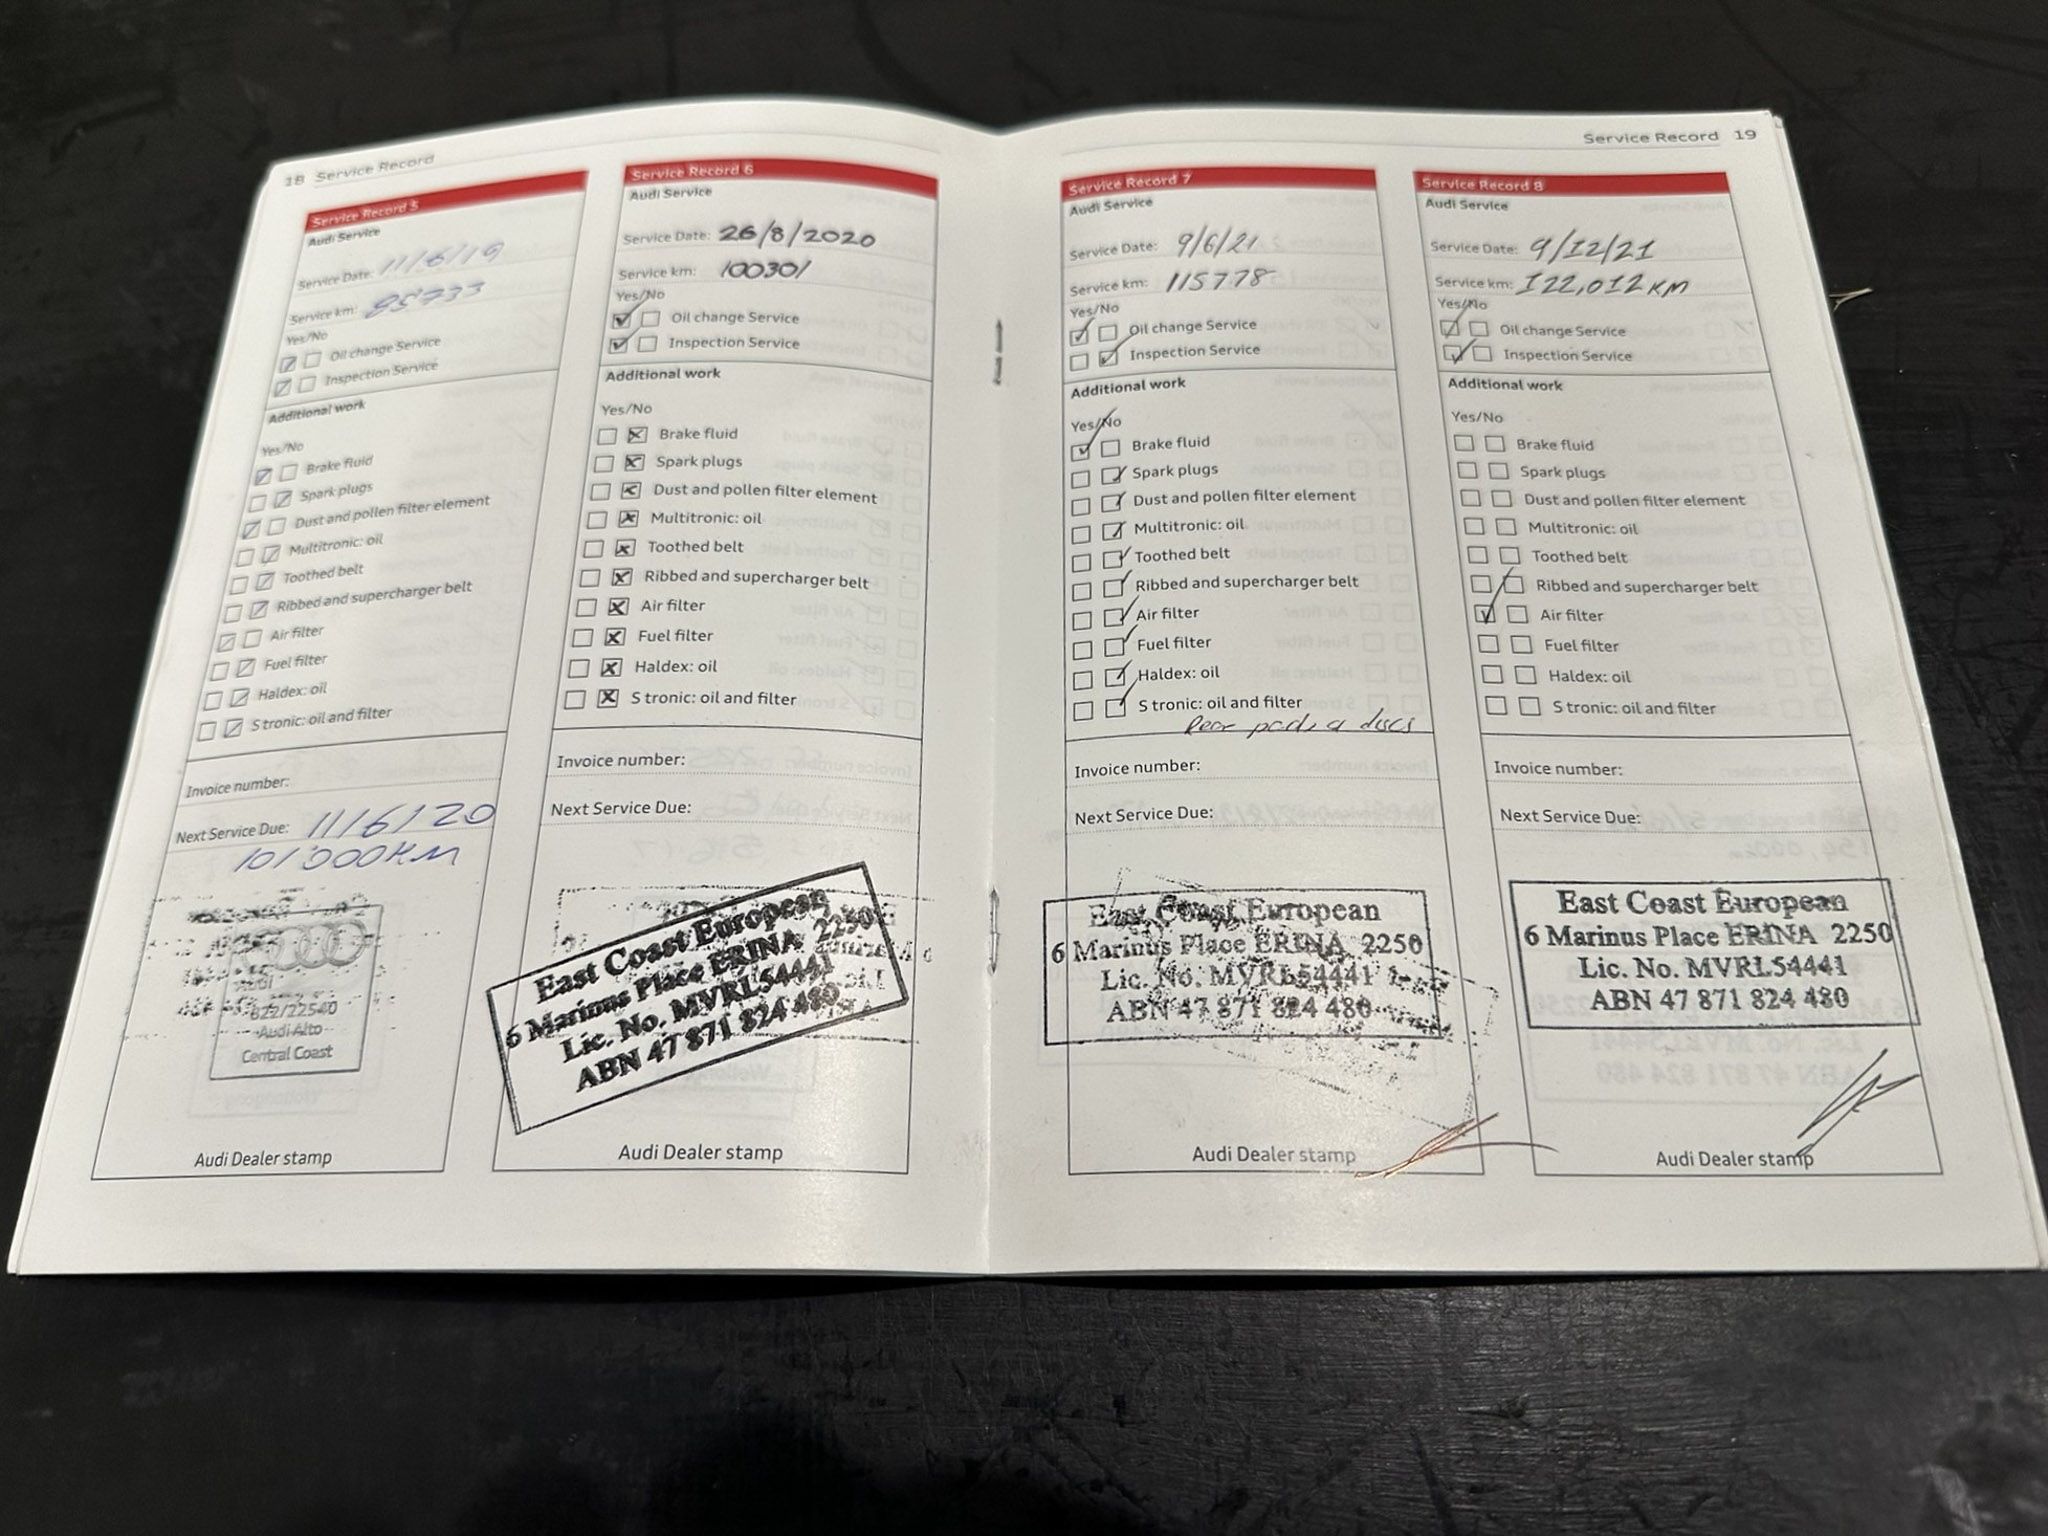 18 Service Record
Service Record 5
Audi Service
Service Date: 11/6/19
Service km: 85733
Yes/No
Oil change Service
Inspection Service
Additional work
Yes/No
Brake fluid
Spark plugs
Dust and pollen filter element
Multitronic: oil
Toothed belt
Ribbed and supercharger belt
Air filter
Fuel filter
Haldex: oil
S tronic: oil and filter
Invoice number:
Next Service Due: 11/6/20
101'000KM
Audi
622/22540
Audi Alto
Central Coast
Audi Dealer stamp
Service Record 6
Audi Service
Service Date: 26/8/2020
Service km: 100301
Yes/No
Oil change Service
Inspection Service
Additional work
Yes/No
Brake fluid
Spark plugs
Dust and pollen filter element
Multitronic: oil
Toothed belt
Ribbed and supercharger belt
Air filter
Fuel filter
Haldex: oil
S tronic: oil and filter
Invoice number:
Next Service Due:
East Coast European
6 Marinus Place ERINA 2250
Lic. No. MVRL54441
ABN 47 871 824 480
Audi Dealer stamp
Service Record 19
Service Record 7
Audi Service
Service Date: 9/6/21
Service km: 115778
Yes/No
Oil change Service
Inspection Service
Additional work
Yes/No
Brake fluid
Spark plugs
Dust and pollen filter element
Multitronic: oil
Toothed belt
Ribbed and supercharger belt
Air filter
Fuel filter
Haldex: oil
S tronic: oil and filter
Rear pads & discs
Invoice number:
Next Service Due:
East Coast European
6 Marinus Place ERINA 2250
Lic. No. MVRL54441
ABN 47 871 824 480
Audi Dealer stamp
Service Record 8
Audi Service
Service Date: 9/12/21
Service km: 122,012 KM
Yes/No
Oil change Service
Inspection Service
Additional work
Yes/No
Brake fluid
Spark plugs
Dust and pollen filter element
Multitronic: oil
Toothed belt
Ribbed and supercharger belt
Air filter
Fuel filter
Haldex: oil
S tronic: oil and filter
Invoice number:
Next Service Due:
East Coast European
6 Marinus Place ERINA 2250
Lic. No. MVRL54441
ABN 47 871 824 480
Audi Dealer stamp